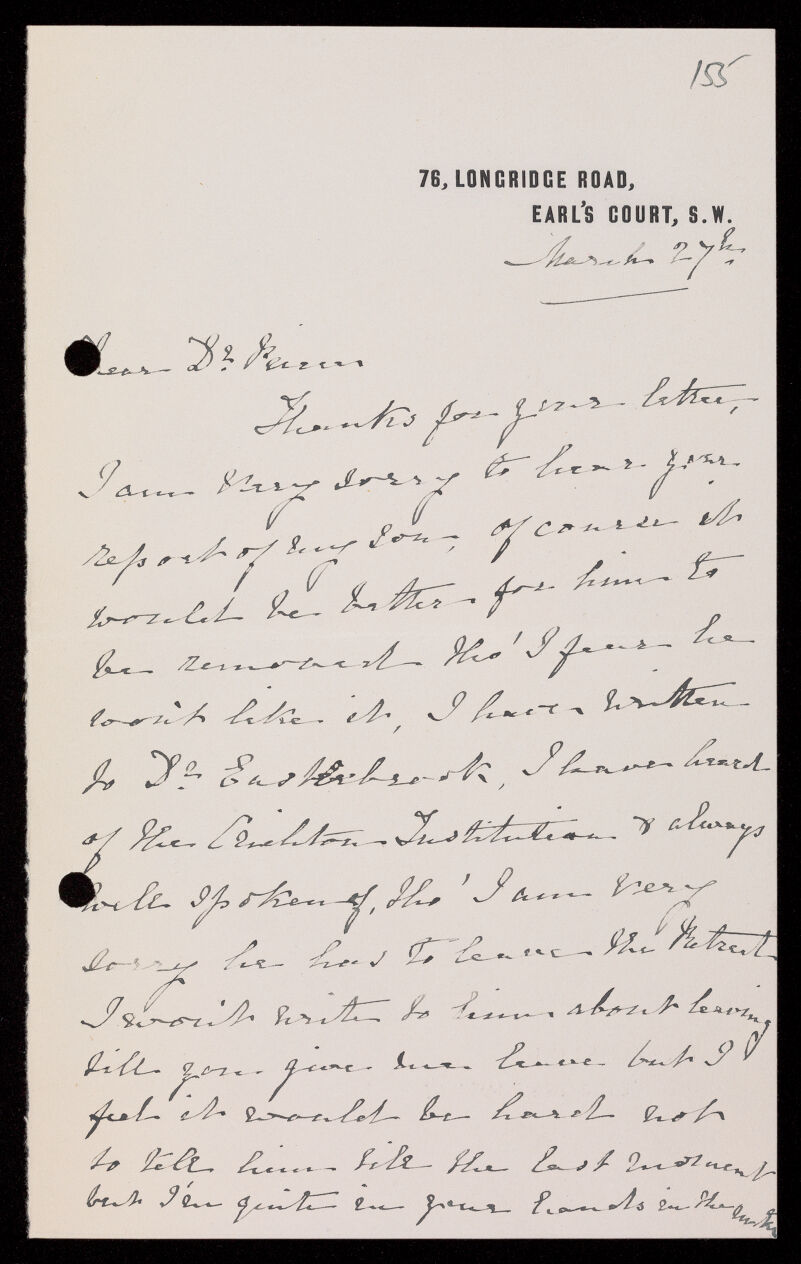 155
76, LONGRIDGE ROAD,
EARL'S COURT, S.W.
March 27th
Dear Dr. Pierce
Thanks for your letter,
I am very sorry to hear your
report of my son, of course it
would be better for him to
be removed tho' I fear he
won't like it, I have written
to Dr. Easterbrook, I have heard
of the Crichton Institution & always
well spoken of, tho' I am very
sorry he has to leave the Retreat
I won't write to him about leaving
till you give me leave but I
feel it would be hard not
to tell him till the last moment
but I'm quite in your hands in the matter